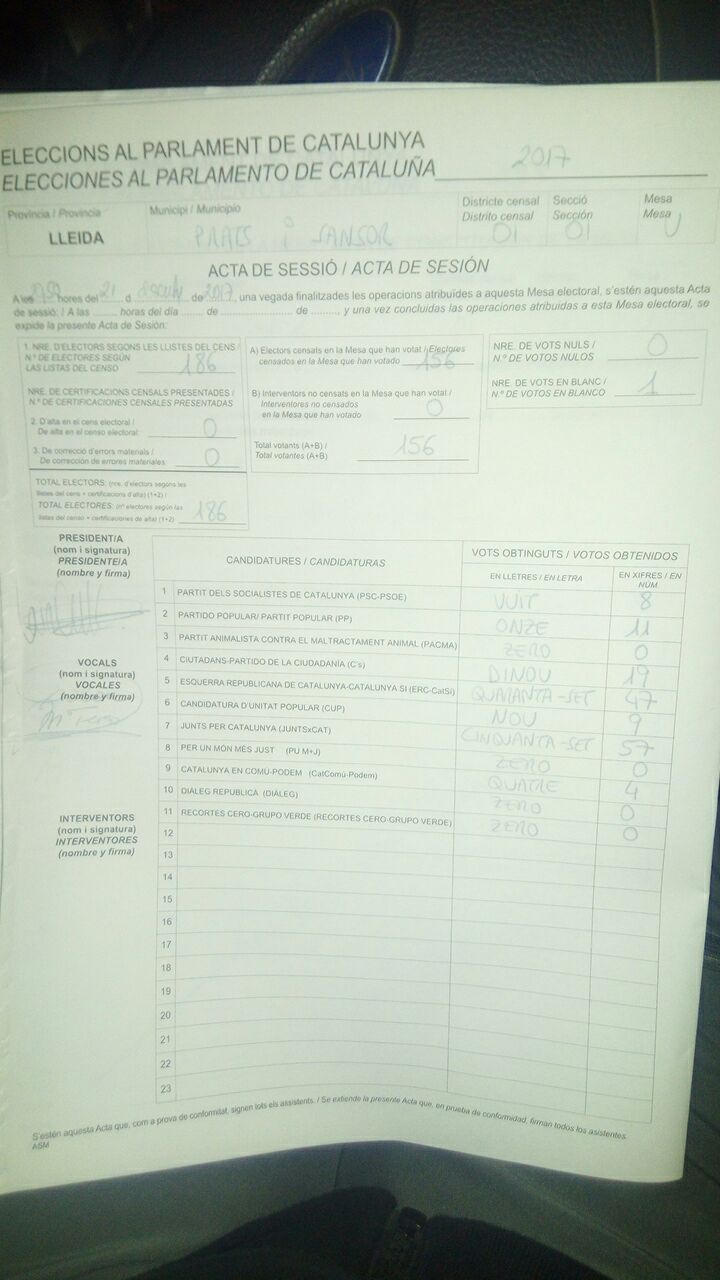 ELECCIONS AL PARLAMENT DE CATALUNYA
ELECCIONES AL PARLAMENTO DE CATALUÑA 2017
Província / Provincia Municipi / Municipio Districte censal Secció Mesa
Distrito censal Sección Mesa
LLEIDA PRATS i SANSOR 01 01 U
ACTA DE SESSIÓ / ACTA DE SESIÓN
A les hores del 21 d de 2017, una vegada finalitzades les operacions atribuïdes a aquesta Mesa electoral, s'estén aquesta Acta
de sessió: / A las ......... horas del día ......... de ......... de ........., y una vez concluidas las operaciones atribuidas a esta Mesa electoral, se
expide la presente Acta de Sesión:
1. NRE. D'ELECTORS SEGONS LES LLISTES DEL CENS /
N.º DE ELECTORES SEGÚN
LAS LISTAS DEL CENSO 186
NRE. DE CERTIFICACIONS CENSALS PRESENTADES /
N.º DE CERTIFICACIONES CENSALES PRESENTADAS
2. D'alta en el cens electoral /
De alta en el censo electoral: 0
3. De correcció d'errors materials /
De corrección de errores materiales 0
TOTAL ELECTORS: (nre. d'electors segons les
llistes del cens + certificacions d'alta) (1+2) /
TOTAL ELECTORES: (nº electores según las
listas del censo + certificaciones de alta) (1+2) 186
A) Electors censats en la Mesa que han votat / Electores
censados en la Mesa que han votado 156
B) Interventors no censats en la Mesa que han votat /
Interventores no censados
en la Mesa que han votado 0
Total votants (A+B) /
Total votantes (A+B) 156
NRE. DE VOTS NULS /
N.º DE VOTOS NULOS 0
NRE. DE VOTS EN BLANC /
N.º DE VOTOS EN BLANCO 1
PRESIDENT/A
(nom i signatura)
PRESIDENTE/A
(nombre y firma)
VOCALS
(nom i signatura)
VOCALES
(nombre y firma)
INTERVENTORS
(nom i signatura)
INTERVENTORES
(nombre y firma)
CANDIDATURES / CANDIDATURAS VOTS OBTINGUTS / VOTOS OBTENIDOS
EN LLETRES / EN LETRA EN XIFRES / EN NÚM.
1 PARTIT DELS SOCIALISTES DE CATALUNYA (PSC-PSOE) VUIT 8
2 PARTIDO POPULAR/ PARTIT POPULAR (PP) ONZE 11
3 PARTIT ANIMALISTA CONTRA EL MALTRACTAMENT ANIMAL (PACMA) ZERO 0
4 CIUTADANS-PARTIDO DE LA CIUDADANÍA (C's) DINOU 19
5 ESQUERRA REPUBLICANA DE CATALUNYA-CATALUNYA SÍ (ERC-CatSí) QUARANTA-SET 47
6 CANDIDATURA D'UNITAT POPULAR (CUP) NOU 9
7 JUNTS PER CATALUNYA (JUNTSxCAT) CINQUANTA-SET 57
8 PER UN MÓN MÉS JUST (PU M+J) ZERO 0
9 CATALUNYA EN COMÚ-PODEM (CatComú-Podem) QUATRE 4
10 DIÀLEG REPÚBLICA (DIÀLEG) ZERO 0
11 RECORTES CERO-GRUPO VERDE (RECORTES CERO-GRUPO VERDE) ZERO 0
12
13
14
15
16
17
18
19
20
21
22
23
S'estén aquesta Acta que, com a prova de conformitat, signen tots els assistents. / Se extiende la presente Acta que, en prueba de conformidad, firman todos los asistentes.
ASM